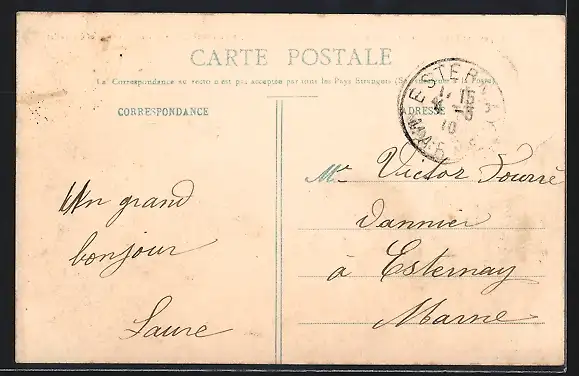 CARTE POSTALE
La Correspondance au recto n'est pas acceptée par tous les Pays Etrangers (Se la Poste)
CORRESPONDANCE
ADRESSE
ESTERNAY
11 15
10
MARNE
Mr Victor Fourré
Vannier
à Esternay
Marne
Un grand
bonjour
Laure